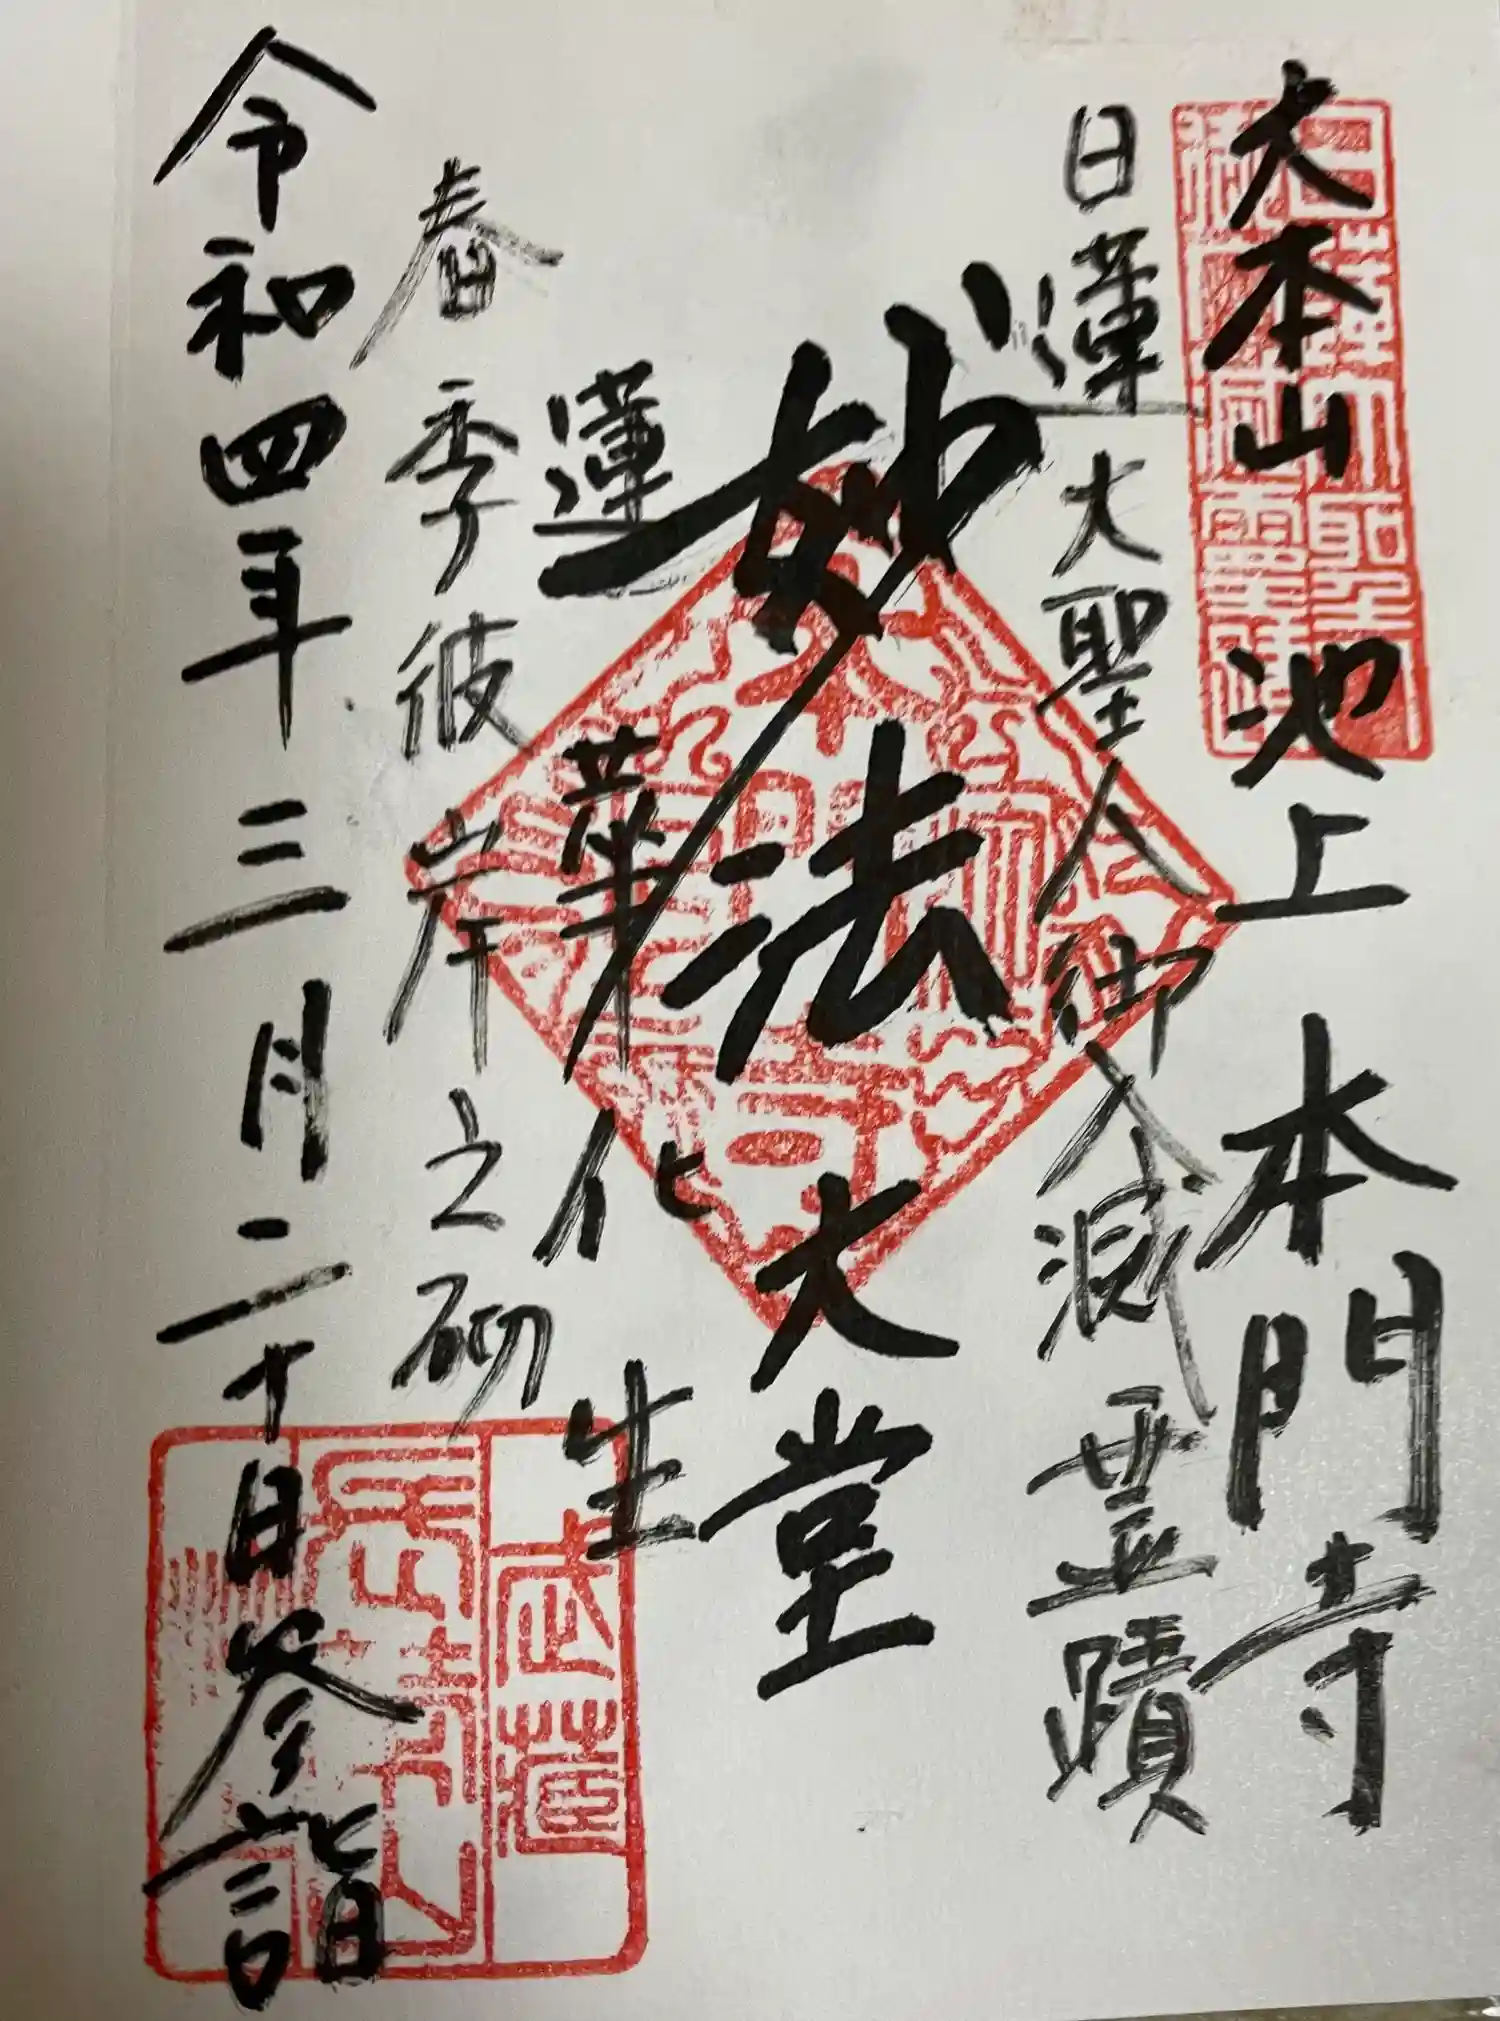 大本山 池上 本門寺
日蓮大聖人御入滅霊蹟
妙法 大堂
蓮華化生
春季彼岸之砌
令和四年三月二十日参詣
日蓮大聖
御
霊
武蔵